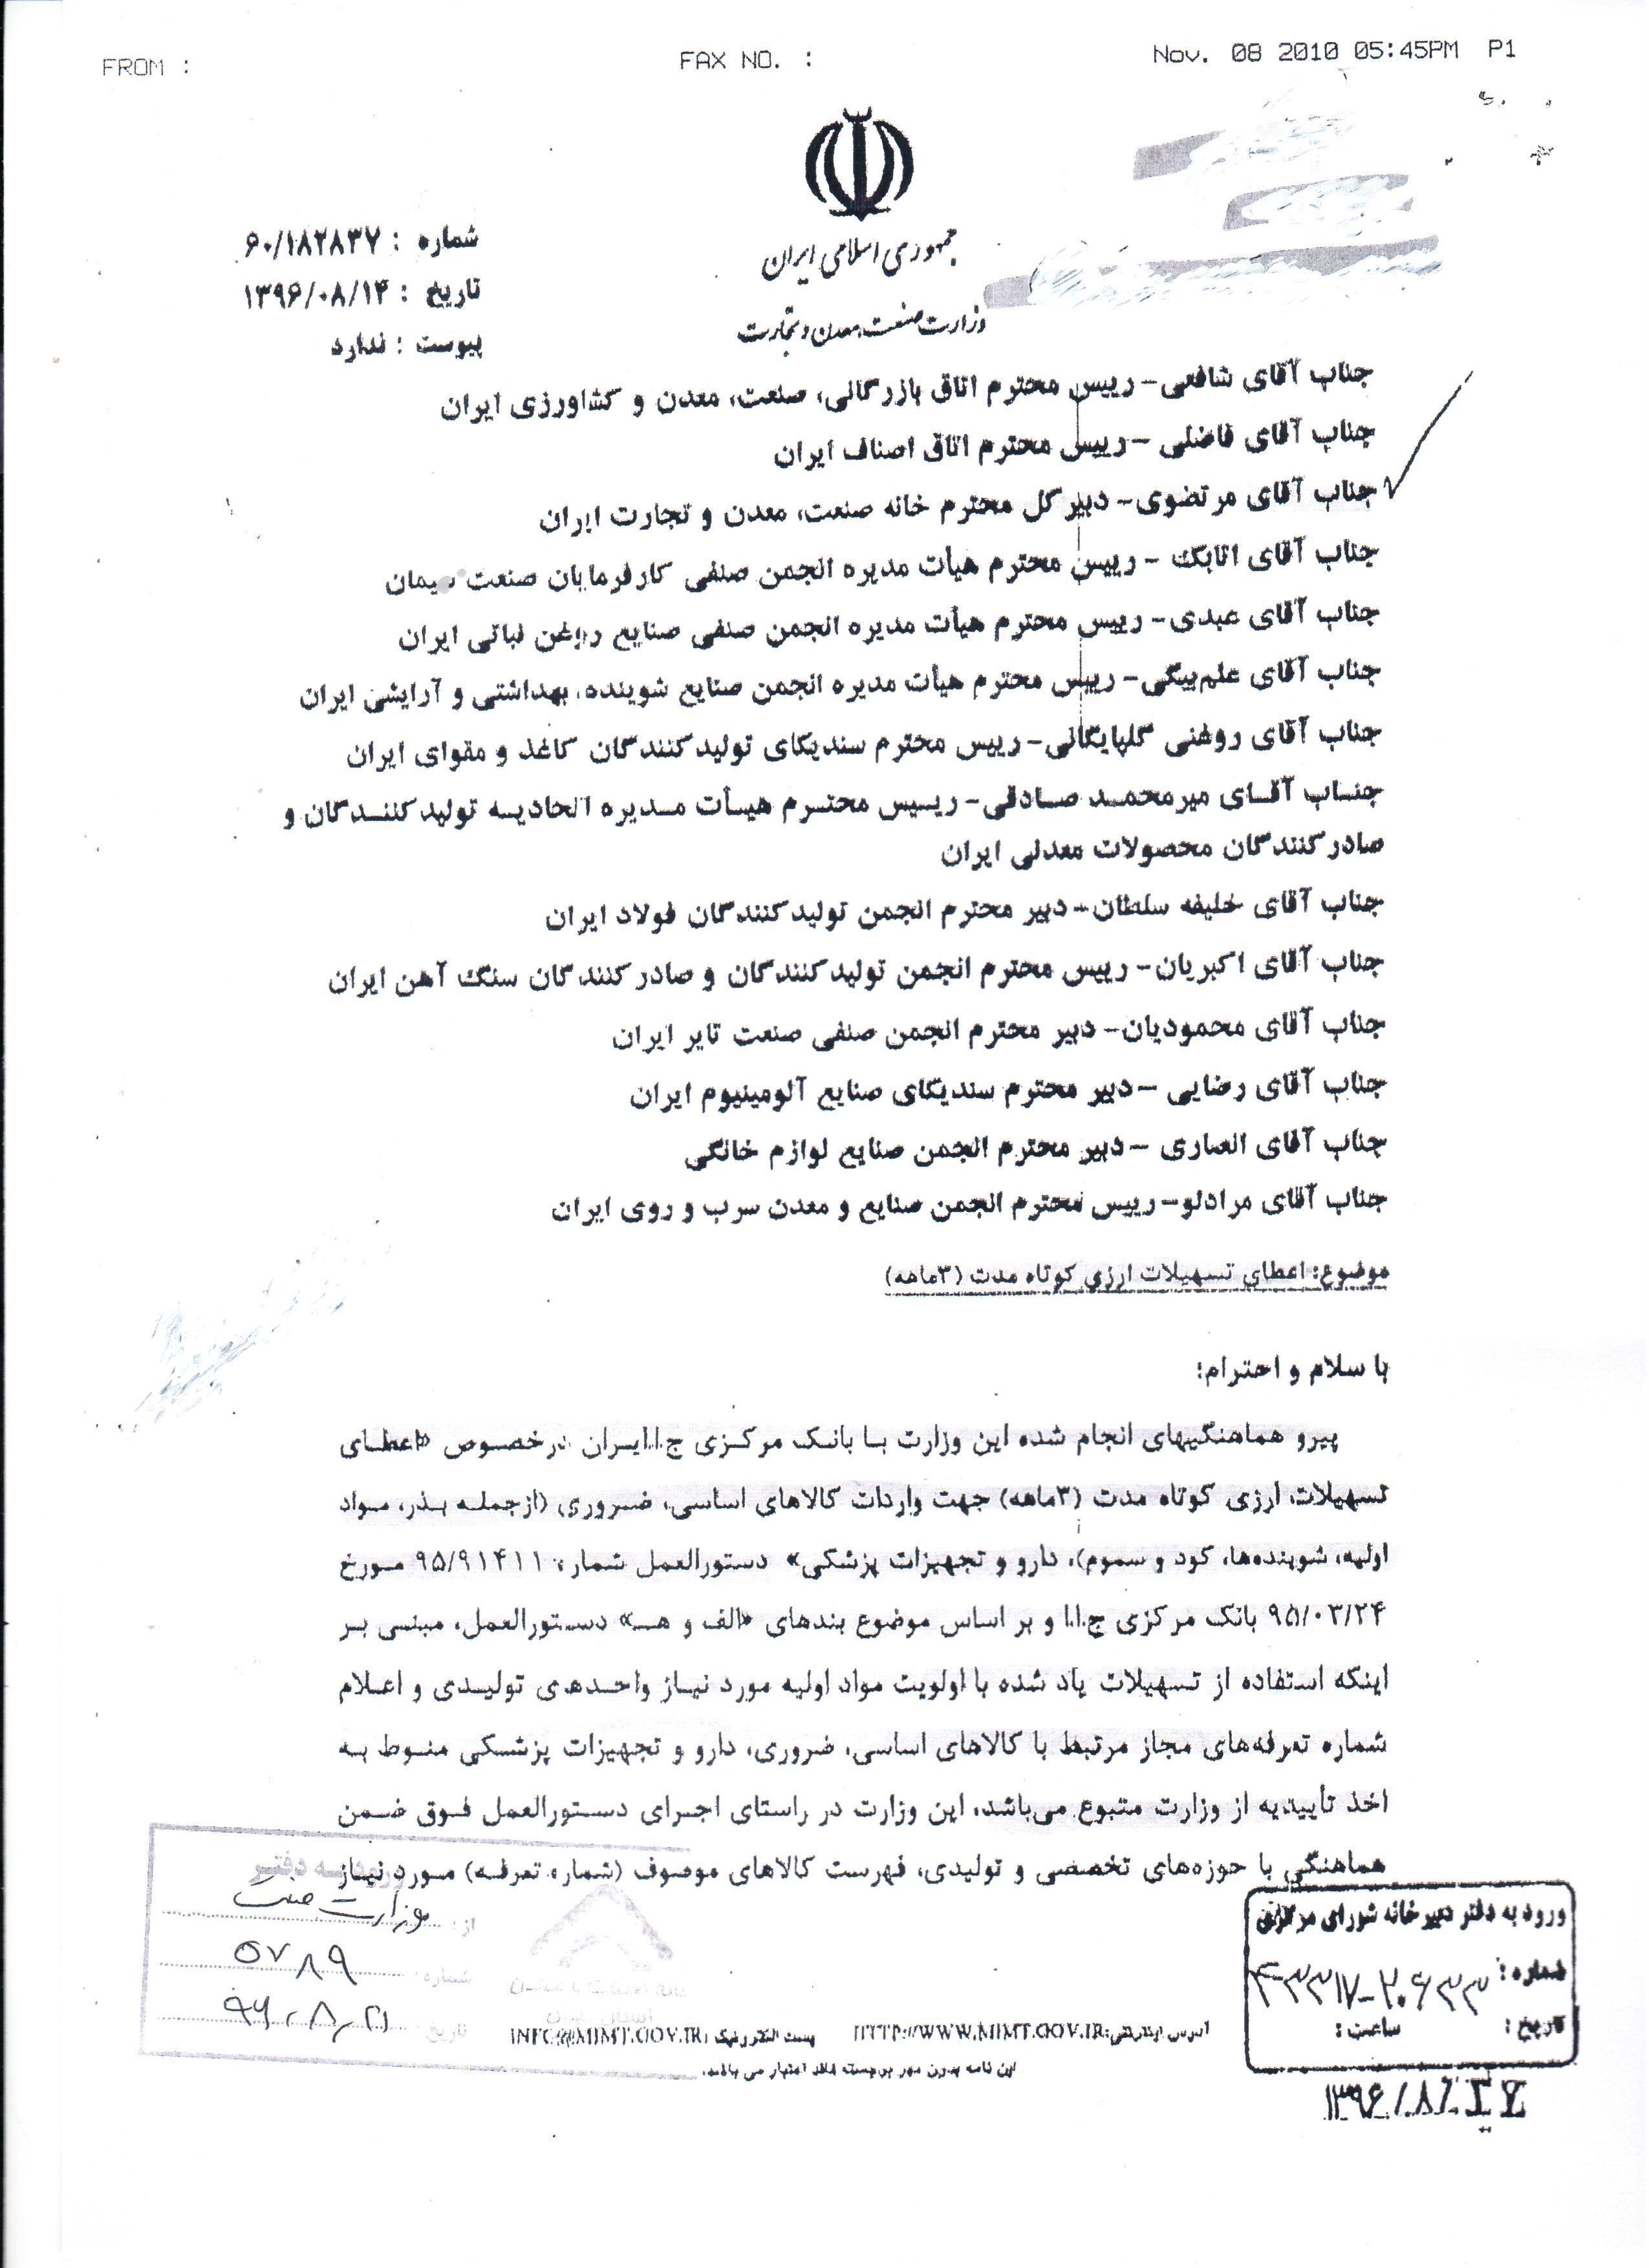 FROM :
FAX NO. :
Nov. 08 2010 05:45PM P1
جمهوری اسلامی ایران
وزارت صنعت، معدن و تجارت
شماره : ۶۰/۱۸۲۸۳۷
تاریخ : ۱۳۹۶/۰۸/۱۴
پیوست : ندارد
جناب آقای شافعی- رییس محترم اتاق بازرگانی، صنعت، معدن و کشاورزی ایران
جناب آقای فاضلی - رییس محترم اتاق اصناف ایران
جناب آقای مرتضوی- دبیر کل محترم خانه صنعت، معدن و تجارت ایران
جناب آقای اتابک - رییس محترم هیأت مدیره انجمن صنفی کارفرمایان صنعت سیمان
جناب آقای عبدی- رییس محترم هیأت مدیره انجمن صنفی صنایع روغن نباتی ایران
جناب آقای علم‌بیگی- رییس محترم هیأت مدیره انجمن صنایع شوینده، بهداشتی و آرایشی ایران
جناب آقای روغنی گلپایگانی- رییس محترم سندیکای تولیدکنندگان کاغذ و مقوای ایران
جناب آقای میرمحمد صادقی- رییس محترم هیأت مدیره اتحادیه تولیدکنندگان و
صادرکنندگان محصولات معدنی ایران
جناب آقای خلیفه سلطان- دبیر محترم انجمن تولیدکنندگان فولاد ایران
جناب آقای اکبریان- رییس محترم انجمن تولیدکنندگان و صادرکنندگان سنگ آهن ایران
جناب آقای محمودیان- دبیر محترم انجمن صنفی صنعت تایر ایران
جناب آقای رضایی - دبیر محترم سندیکای صنایع آلومینیوم ایران
جناب آقای انصاری - دبیر محترم انجمن صنایع لوازم خانگی
جناب آقای مرادلو- رییس محترم انجمن صنایع و معدن سرب و روی ایران
موضوع: اعطای تسهیلات ارزی کوتاه مدت (۳ماهه)
با سلام و احترام؛
پیرو هماهنگیهای انجام شده این وزارت با بانک مرکزی ج.ا.ایران درخصوص «اعطای
تسهیلات ارزی کوتاه مدت (۳ماهه) جهت واردات کالاهای اساسی، ضروری (ازجمله بذر، مواد
اولیه، شوینده‌ها، کود و سموم)، دارو و تجهیزات پزشکی» دستورالعمل شماره ۹۵/۹۱۴۱۱ مورخ
۹۵/۰۳/۲۴ بانک مرکزی ج.ا.ا و بر اساس موضوع بندهای «الف و هـ» دستورالعمل، مبنی بر
اینکه استفاده از تسهیلات یاد شده با اولویت مواد اولیه مورد نیاز واحدهای تولیدی و اعلام
شماره تعرفه‌های مجاز مرتبط با کالاهای اساسی، ضروری، دارو و تجهیزات پزشکی منوط به
اخذ تأییدیه از وزارت متبوع می‌باشد، این وزارت در راستای اجرای دستورالعمل فوق ضمن
هماهنگی با حوزه‌های تخصصی و تولیدی، فهرست کالاهای موصوف (شماره تعرفه) مورد نیاز
ورود به دفتر
از : وزارت صنعت
شماره : ۵۷۸۹
تاریخ : ۹۶،۸،۲۱
ورود به دفتر دبیرخانه شورای مرکزی
شماره :
تاریخ : ساعت :
آدرس اینترنتی: HTTP://WWW.MIMT.GOV.IR پست الکترونیک: INFO@MIMT.GOV.IR
این نامه بدون مهر برجسته فاقد اعتبار می باشد.